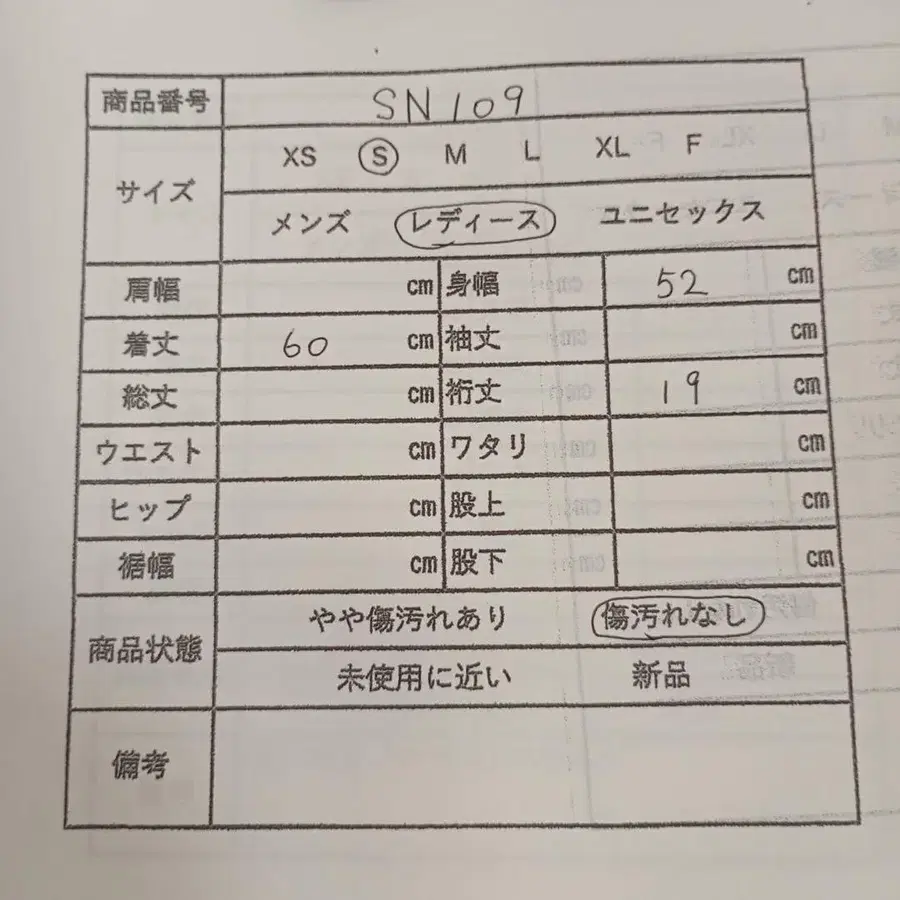 商品番号 SN109
サイズ XS S M L XL F
メンズ レディース ユニセックス
肩幅 cm 身幅 52 cm
着丈 60 cm 袖丈 cm
総丈 cm 裄丈 19 cm
ウエスト cm ワタリ cm
ヒップ cm 股上 cm
裾幅 cm 股下 cm
商品状態 やや傷汚れあり 傷汚れなし
未使用に近い 新品
備考